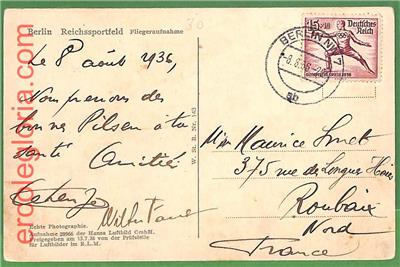 Berlin Reichssportfeld Fliegeraufnahme
30
Le 8 août 1936,
Nous prenons des
bonnes Pilsen à ta
santé Amitié
Echte Photographie.
Aufnahme 20966 der Hansa Luftbild GmbH.
Freigegeben am 13.7.36 von der Prüfstelle
für Luftbilder im R.L.M.
W. St. B. Nr. 143
BERLIN NW 7
-8.8.36
ab
15+10
Deutsches
Reich
Maurice
375 rue de Longues Haies
Roubaix
Nord
France
erolesgloria.com